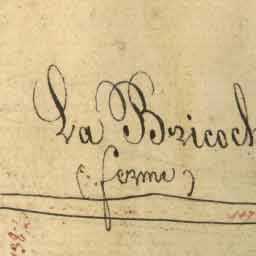 La Bricoch
(ferme)